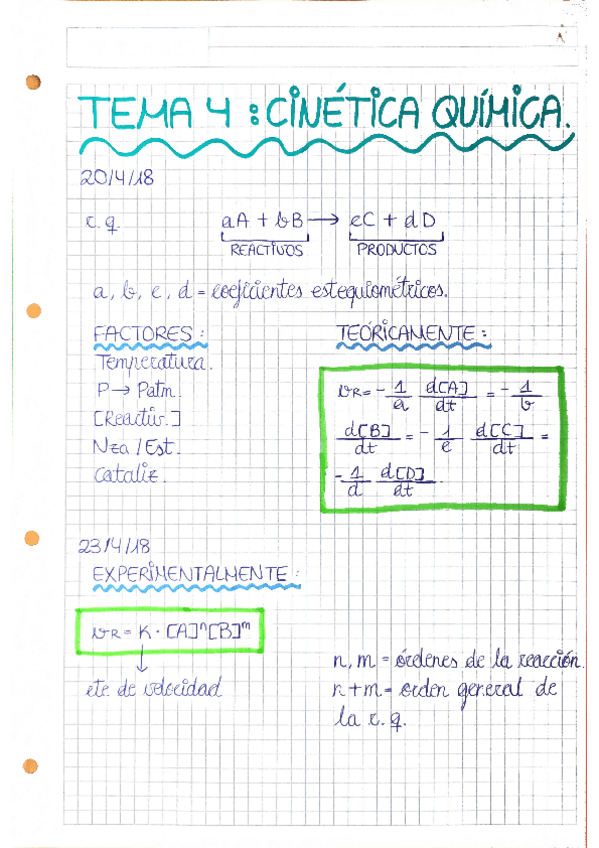 TEMA 4 : CINÉTICA QUÍMICA.
20/4/18
r.q. aA + bB → eC + dD
REACTIVOS PRODUCTOS
a, b, e, d = coeficientes estequiométricos.
FACTORES :
Temperatura.
P → Patm.
[Reactiv.]
Nza / Est.
Cataliz.
TEÓRICAMENTE :
vR = - 1/a d[A]/dt = - 1/b
d[B]/dt = - 1/e d[C]/dt =
- 1/d d[D]/dt
23/4/18
EXPERIMENTALMENTE :
vR = K · [A]ⁿ[B]ᵐ
↓
cte de velocidad
n, m = órdenes de la reacción.
n+m = orden general de
la r.q.